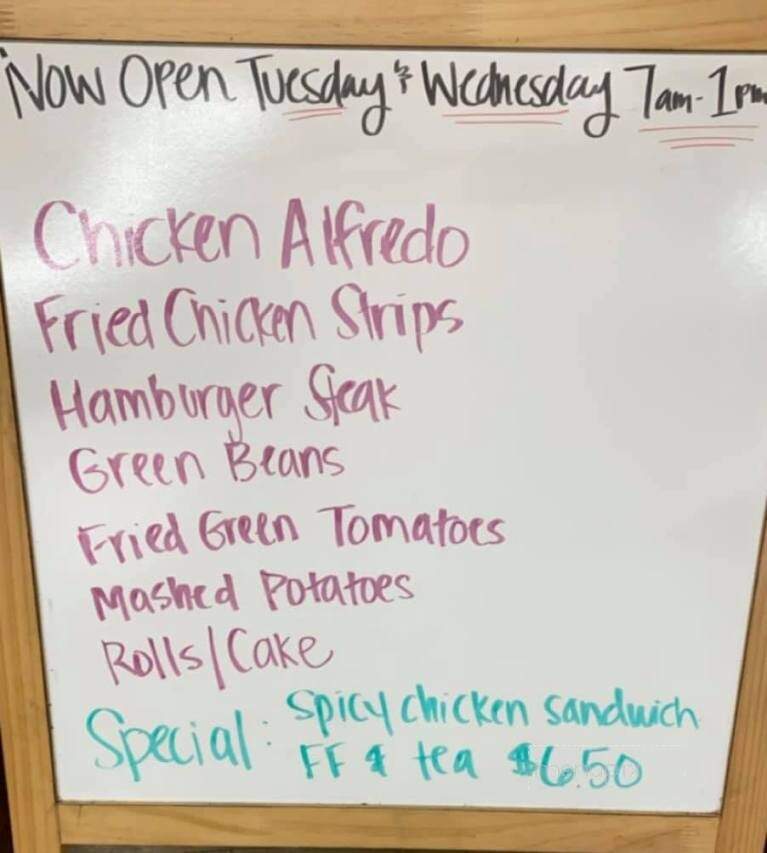 Now Open Tuesday & Wednesday 7am-1pm
Chicken Alfredo
Fried Chicken Strips
Hamburger Steak
Green Beans
Fried Green Tomatoes
Mashed Potatoes
Rolls/Cake
Special: Spicy chicken sandwich
FF & tea $6.50